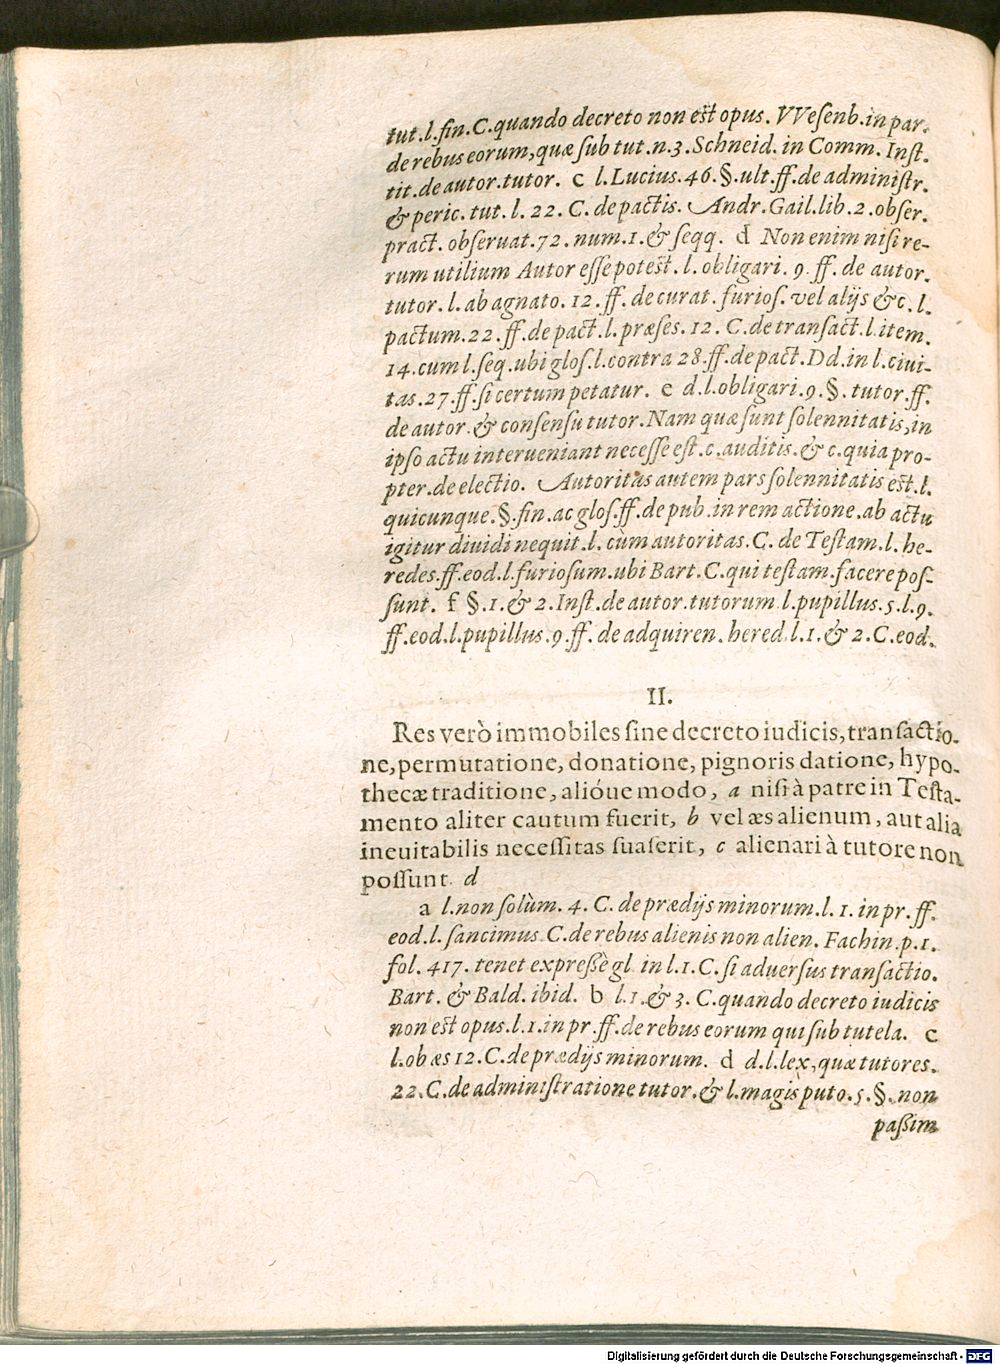 tut.l.fin.C.quando decreto non est opus. VVesenb.in par.
de rebus eorum, quæ sub tut.n.3.Schneid. in Comm. Inst.
tit.de autor.tutor. c l.Lucius.46.§.ult.ff.de administr.
& peric. tut. l. 22. C. de pactis. Andr.Gail.lib.2.obser.
pract. obseruat.72.num.1.& seqq. d Non enim nisi re-
rum utilium Autor esse potest.l. obligari. 9. ff. de autor.
tutor. l. ab agnato. 12. ff. de curat. furios. vel alijs &c. l.
pactum.22.ff.de pact.l. præses. 12. C.de transact.l.item.
14.cum l.seq.ubi glos.l.contra 28.ff.de pact.Dd.in l.ciui-
tas.27.ff.si certum petatur. e d.l.obligari.9.§. tutor.ff.
de autor.& consensu tutor. Nam quæ sunt solennitatis, in
ipso actu interueniant necesse est.c.auditis.& c.quia pro-
pter.de electio. Autoritas autem pars solennitatis est.l.
quicunque.§.fin.ac glos.ff.de pub.in rem actione.ab actu
igitur diuidi nequit.l. cum autoritas.C. de Testam.l. he-
redes.ff.eod.l.furiosum.ubi Bart.C.qui testam.facere pos-
sunt. f §.1.& 2.Inst.de autor.tutorum.l.pupillus.5.l.9.
ff.eod.l.pupillus.9.ff. de adquiren. hered.l.1.& 2.C.eod.
II.
Res verò immobiles sine decreto iudicis, transactio-
ne, permutatione, donatione, pignoris datione, hypo-
thecæ traditione, alióue modo, a nisi à patre in Testa-
mento aliter cautum fuerit, b vel æs alienum, aut alia
ineuitabilis necessitas suaserit, c alienari à tutore non
possunt. d
a l.non solùm. 4. C. de prædijs minorum.l. 1. in pr. ff.
eod.l. sancimus. C.de rebus alienis non alien. Fachin.p.1.
fol. 417. tenet expressè gl. in l.1.C. si aduersus transactio.
Bart. & Bald. ibid. b l.1.& 3. C.quando decreto iudicis
non est opus.l.1.in pr.ff.de rebus eorum qui sub tutela. c
l.ob æs 12.C.de prædijs minorum. d d.l.lex, quæ tutores.
22.C.de administratione tutor.& l.magis puto.5.§. non
passim
Digitalisierung gefördert durch die Deutsche Forschungsgemeinschaft - DFG